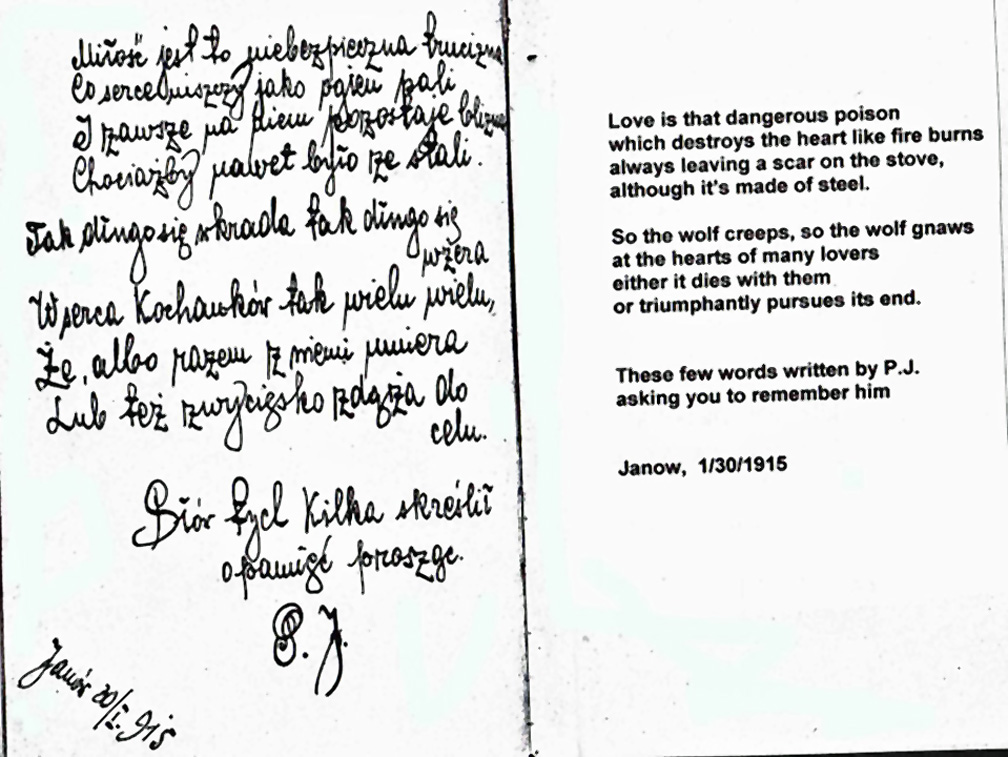 Miłość jest to niebezpieczna trucizna
Co serce niszczy jako ogień pali
I zawsze na niem pozostaje blizna
Chociażby nawet było ze stali.
Tak długo się skrada tak długo się
wżera
W serca Kochanków tak wielu wielu,
Że, albo razem z niemi umiera
Lub też zwycięsko zdąża do
celu.
Słów tych Kilka skreślił
o pamięć proszęc.
P. J.
Janów 30/I. 915
Love is that dangerous poison
which destroys the heart like fire burns
always leaving a scar on the stove,
although it's made of steel.
So the wolf creeps, so the wolf gnaws
at the hearts of many lovers
either it dies with them
or triumphantly pursues its end.
These few words written by P.J.
asking you to remember him
Janow, 1/30/1915